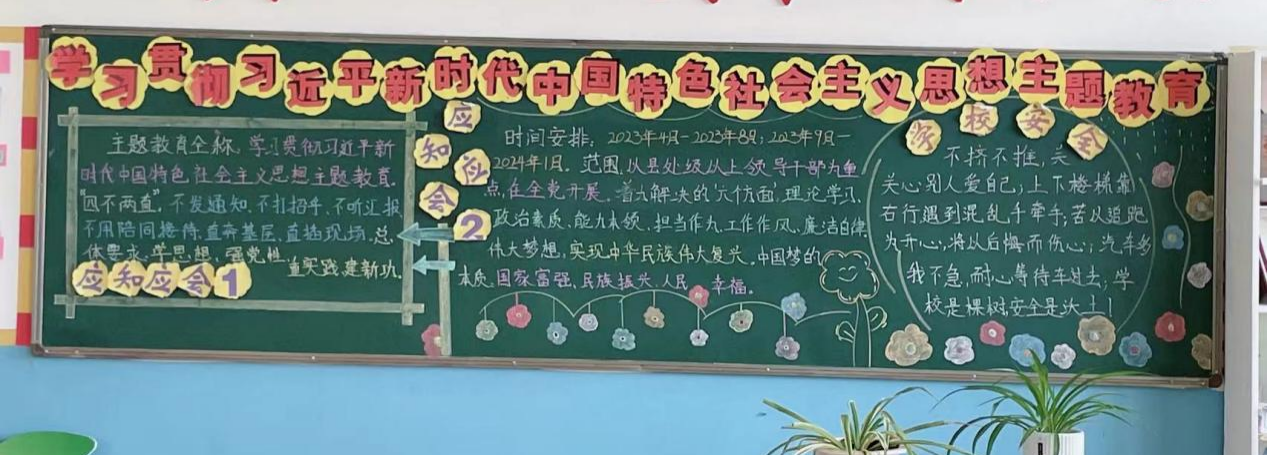 学习贯彻习近平新时代中国特色社会主义思想主题教育
主题教育全称,学习贯彻习近平新
时代中国特色社会主义思想主题教育。
"四不两直"不发通知、不打招乎、不听汇报
不用陪同接待、直奔基层、直插现场.总
体要求,学思想、强党性、重实践,建新功.
应知应会1
应知应会2
时间安排:2023年4月-2023年8月;2023年9月-
2024年1月。范围,从县处级从上领导干部为重
点,在全党开展。着力解决的"六个方面",理论学习、
政治素质、能力本领、担当作为、工作作风、廉洁自律
伟大梦想,实现中华民族伟大复兴。中国梦的
本质,国家富强、民族振兴、人民幸福。
学校安全
不挤不推,关
关心别人爱自己;上下楼梯靠
右行遇到混乱手牵手,若以追跑
为开心,将以后悔而伤心;汽车多
我不急,耐心等待车过去;学
校是棵树,安全是沃土!